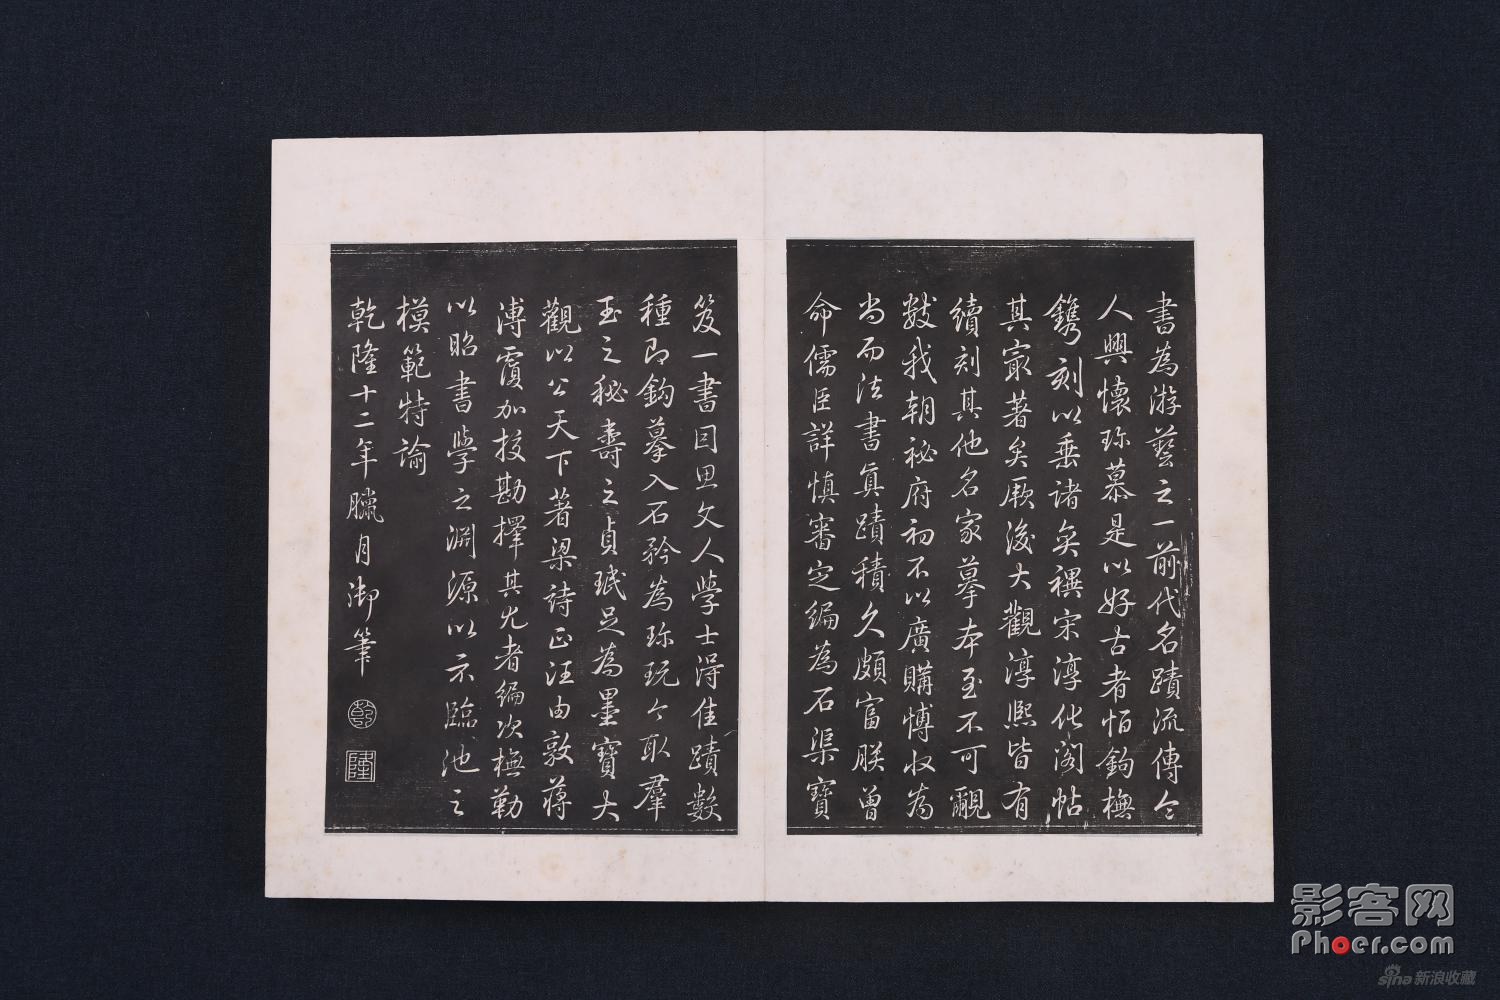 書為游藝之一前代名蹟流傳令
人興懷珎慕是以好古者怕鈎橅
鐫刻以垂諸奕禩宋淳化閣帖
其最著矣厥後大觀淳熙皆有
續刻其他名家摹本至不可覼
數我朝祕府初不以廣購博收為
尚而法書真蹟積久頗富朕曾
命儒臣詳慎審定編為石渠寶
笈一書因思文人學士得佳蹟數
種即鈎摹入石矜為珎玩今取羣
玉之秘壽之貞珉足為墨寶大
觀以公天下著梁詩正汪由敦蔣
溥覆加挍勘擇其尤者編次橅勒
以昭書學之淵源以示臨池之
模範特諭
乾隆十二年臘月御筆
乾
隆
影客网
Phoer.com
sina新浪收藏